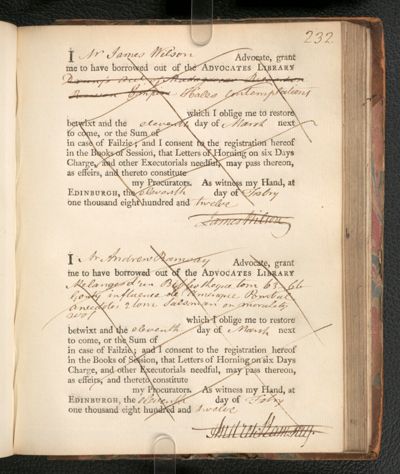 232.
I Mr James Wilson Advocate, grant
me to have borrowed out of the ADVOCATES LIBRARY
Hales Contemplations
which I oblige me to restore
betwixt and the eleventh day of March next
to come, or the Sum of
in case of Failzie; and I consent to the registration hereof
in the Books of Session, that Letters of Horning on six Days
Charge, and other Executorials needful, may pass thereon,
as effeirs, and thereto constitute
my Procurators. As witness my Hand, at
EDINBURGH, the eleventh day of Febry
one thousand eight hundred and twelve
James Wilson
I Mr Andrew Ramsay Advocate, grant
me to have borrowed out of the ADVOCATES LIBRARY
Melanges d'une Bibliotheque tom 65. 66
influence de
anecdotes 2 tom on
which I oblige me to restore
betwixt and the eleventh day of March next
to come, or the Sum of
in case of Failzie; and I consent to the registration hereof
in the Books of Session, that Letters of Horning on six Days
Charge, and other Executorials needful, may pass thereon,
as effeirs, and thereto constitute
my Procurators. As witness my Hand, at
EDINBURGH, the eleventh day of Febry
one thousand eight hundred and twelve
Andrew Ramsay.